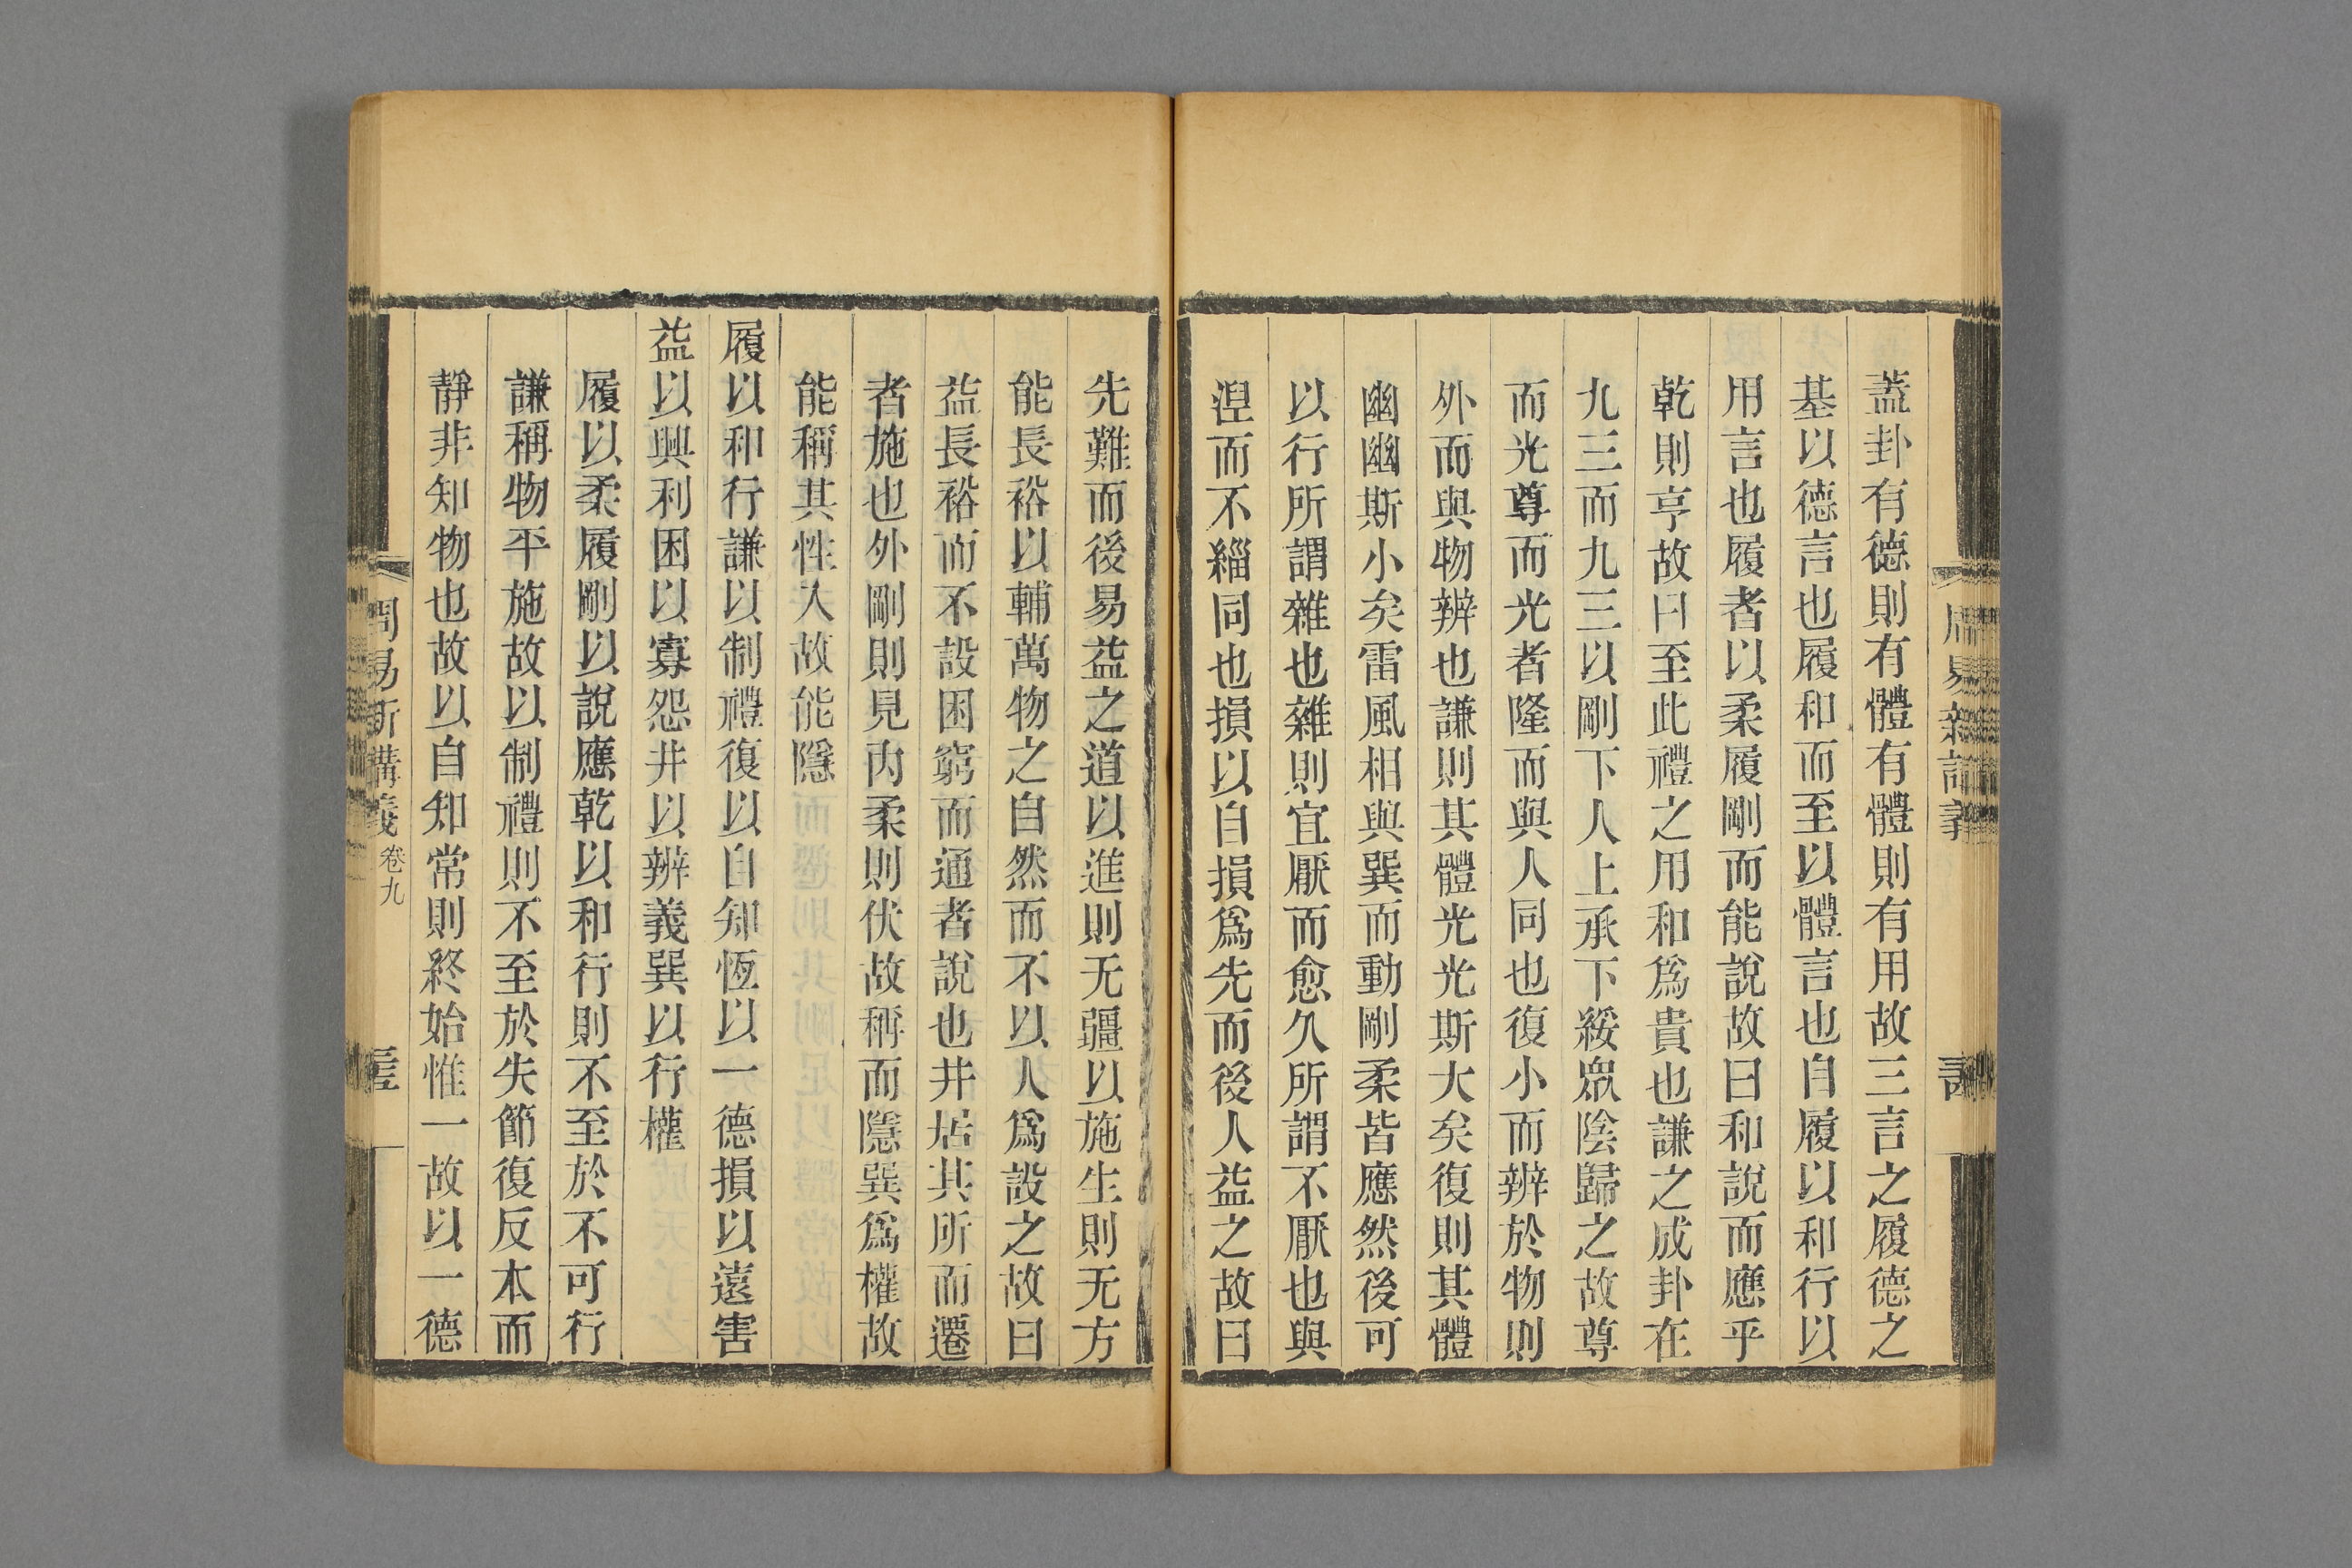 蓋卦有德則有體有體則有用故三言之履德之
基以德言也履和而至以體言也自履以和行以
用言也履者以柔履剛而能說故曰和說而應乎
乾則亨故曰至此禮之用和爲貴也謙之成卦在
九三而九三以剛下人上承下綏眾陰歸之故尊
而光尊而光者隆而與人同也復小而辨於物則
外而與物辨也謙則其體光光斯大矣復則其體
幽幽斯小矣雷風相與巽而動剛柔皆應然後可
以行所謂雜也雜則宜厭而愈久所謂不厭也與
湼而不緇同也損以自損爲先而後人益之故曰
先難而後易益之道以進則无疆以施生則无方
能長裕以輔萬物之自然而不以人爲設之故曰
益長裕而不設困窮而通者說也井居其所而遷
者施也外剛則見內柔則伏故稱而隱巽爲權故
能稱其性入故能隱
履以和行謙以制禮復以自知恆以一德損以遠害
益以興利困以寡怨井以辨義巽以行權
履以柔履剛以說應乾以和行則不至於不可行
謙稱物平施故以制禮則不至於失節復反本而
靜非知物也故以自知常則終始惟一故以一德
周易新講義 卷九